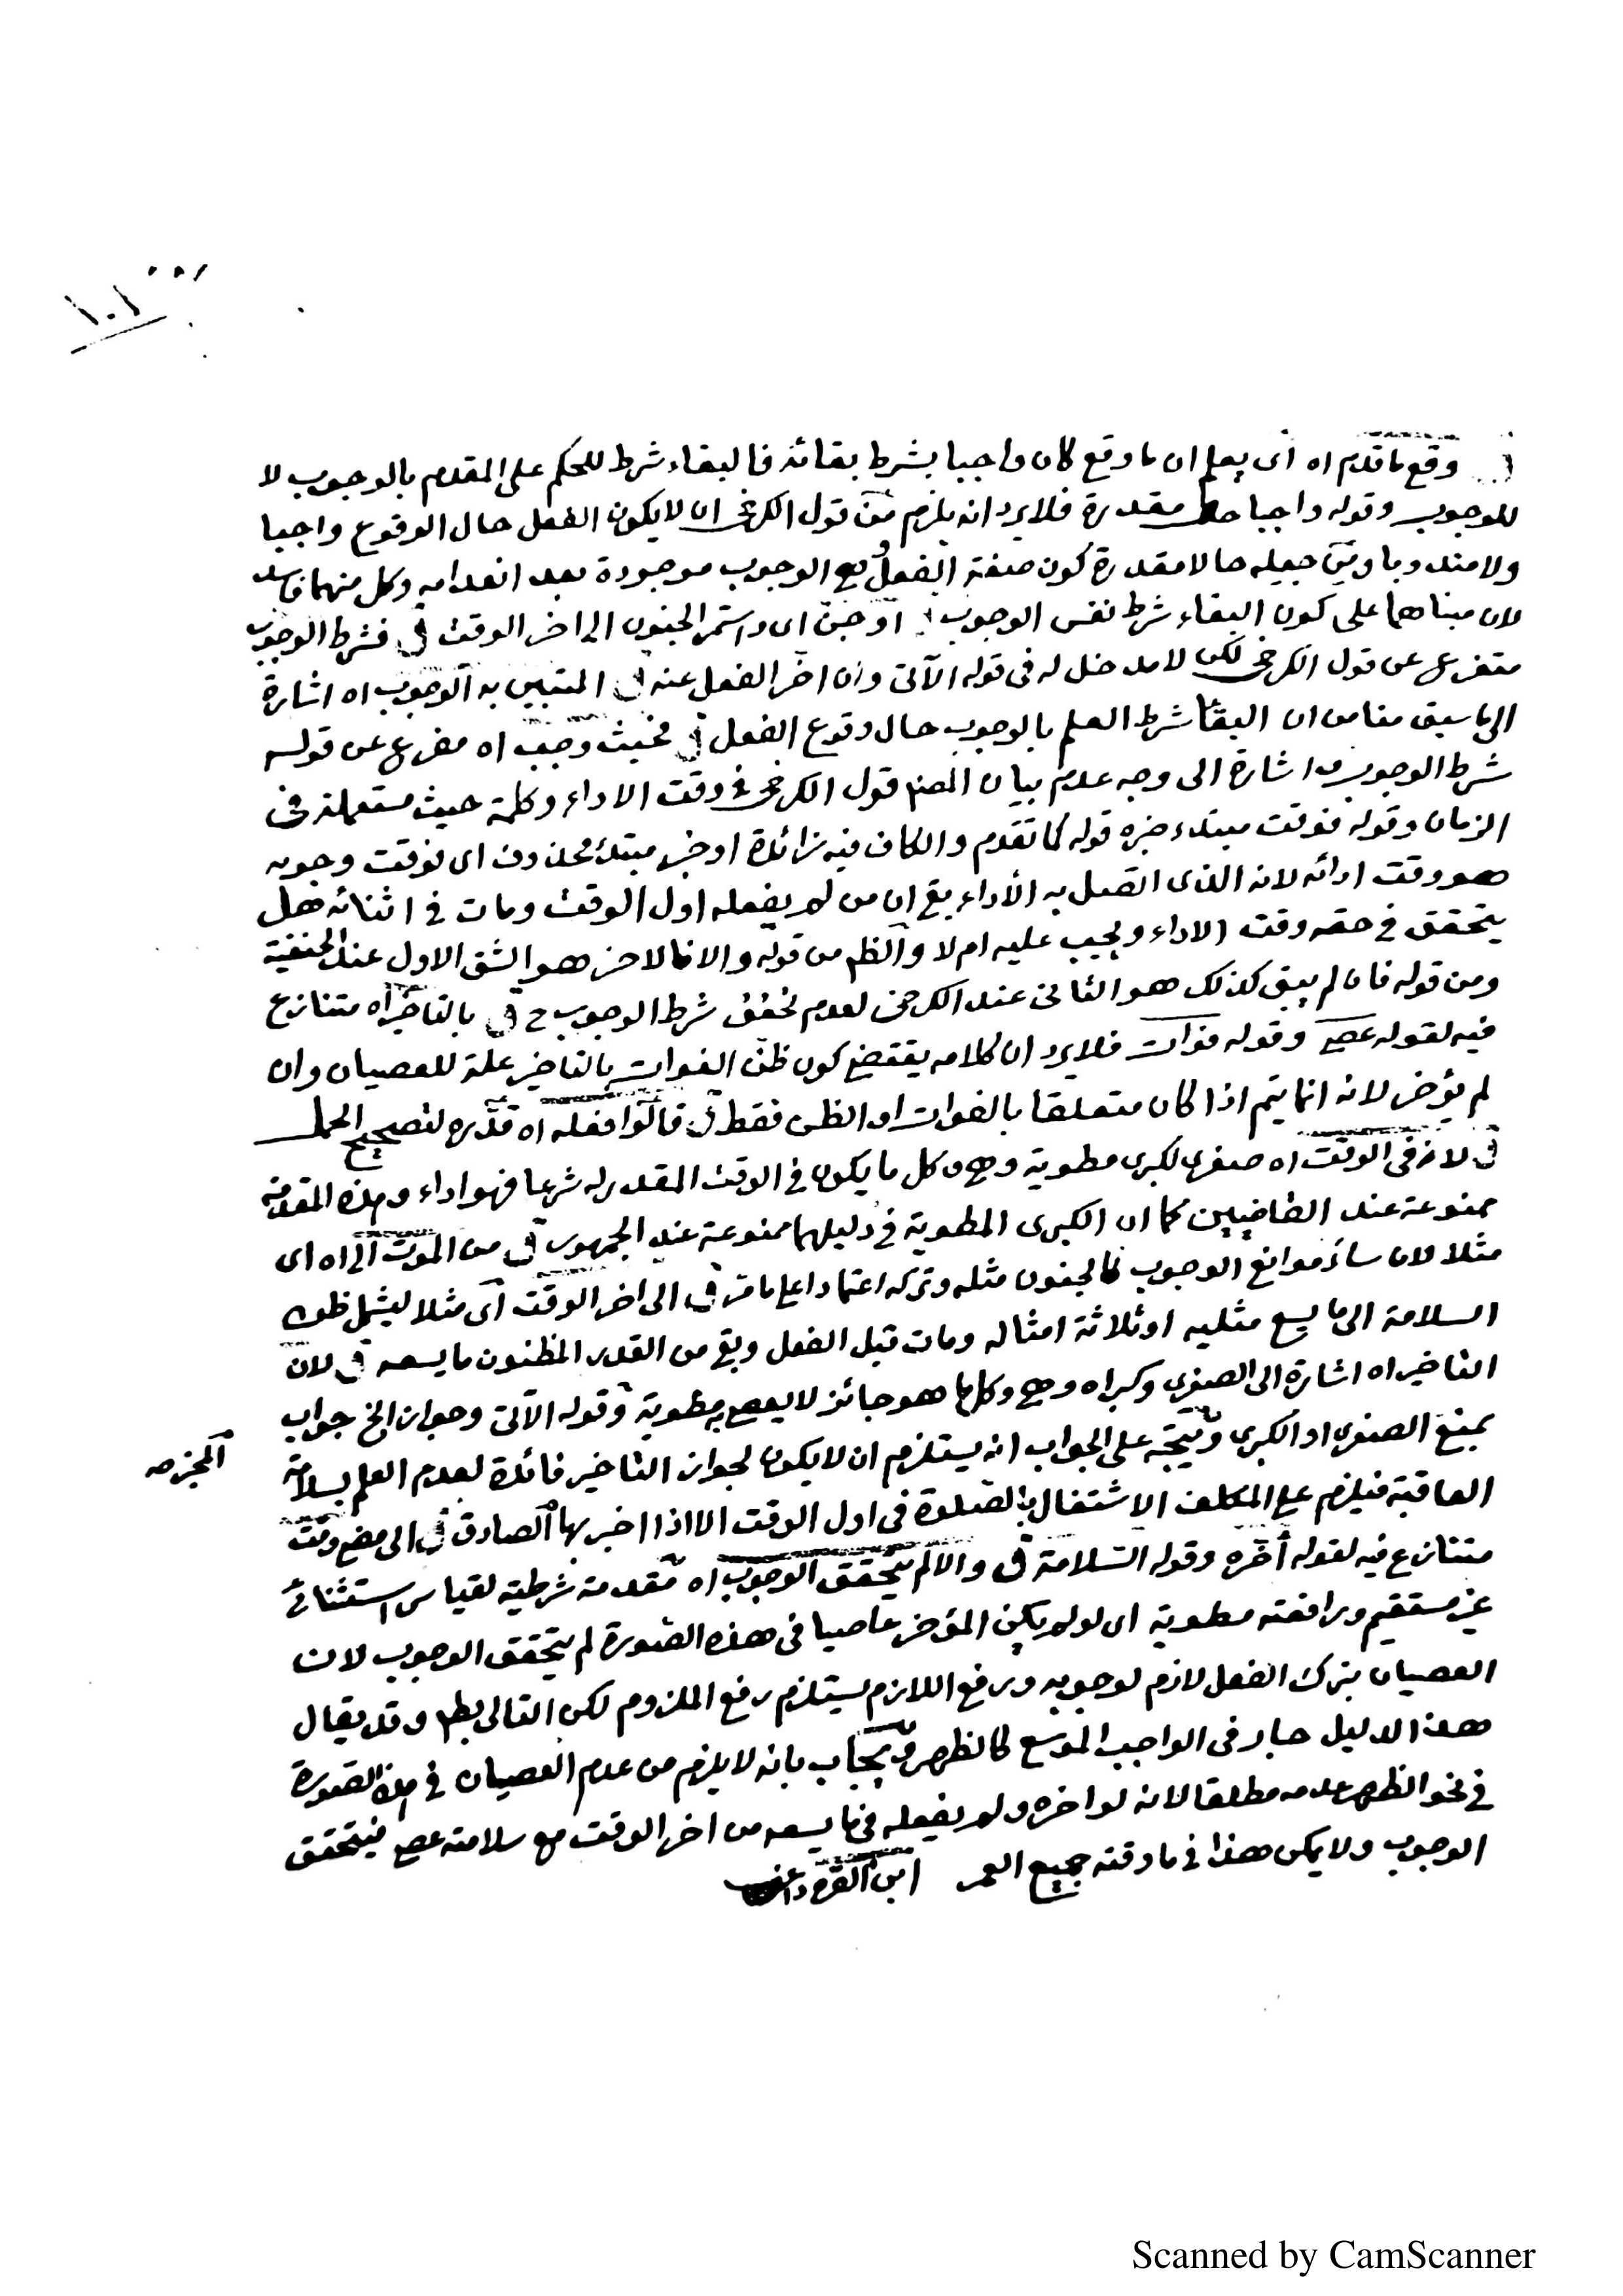 ١٠١
ق وقع ما قدم اه اى يعلم ان ما وقع كان واجبا بشرط بقائه فالبقاء شرط للحكم على المقدم بالوجوب لا
للوجوب وقوله واجبا حال مقدرة فلا يرد انه يلزم من قول الكرخى ان لا يكون الفعل حال الوقوع واجبا
ولا مندوبا ومن جعله حالا مقدرة كون صفة الفعل مع الوجوب موجودة بعد انعدامه وكل منهما فاسد
لان مبناهما على كون البقاء شرط نفس الوجوب ق او جن اى واستمر الجنون الى اخر الوقت ق فشرط الوجوب
متفرع عن قول الكرخى لكن لا مدخل له فى قوله الآتى وان اخر الفعل عنه ق المتبين به الوجوب اه اشارة
الى ما سبق منا من ان البقاء شرط العلم بالوجوب حال وقوع الفعل ق فحيث وجب اه مفرع عن قوله
شرط الوجوب اشارة الى وجه عدم بيان المصنف قول الكرخى فى وقت الاداء وكلمة حيث مستعملة فى
الزمان وقوله فوقت مبتدء خبره قوله كما تقدم والكاف فيه زائدة او خبر مبتدء محذوف اى فوقت وجوبه
هو وقت ادائه لانه الذى اتصل به الأداء بقى ان من لم يفعله اول الوقت ومات فى اثنائه هل
يتحقق فى حقه وقت الاداء ويجب عليه ام لا والظ من قوله والا فالاخر هو الشق الاول عند الحنفية
ومن قوله فان لم يبق كذلك هو الثانى عند الكرخى لعدم تحقق شرط الوجوب ح ق بالتاخير اه متنازع
فيه لقوله عصى وقوله فوات فلا يرد ان كلامه يقتضى كون ظن الفوات بالتاخير علة للعصيان وان
لم يؤخر لانه انما يتم اذا كان متعلقا بالفوات او الظن فقط ق قالوا فعله اه قدره لتصحيح الحمل
ق لانه فى الوقت اه صغرى لكبرى مطوية وهى كل ما يكون فى الوقت المقدر له شرعا فهو اداء وهذه المقدمة
ممنوعة عند القاضيين كما ان الكبرى المطوية فى دليلهما ممنوعة عند الجمهور ق من الموت الى اه اى
مثلا لان سائر موانع الوجوب كالجنون مثله وتركه اعتمادا على ما مر ق الى اخر الوقت اى مثلا ليشمل ظن
السلامة الى ما يسع مثليه او ثلاثة امثاله ومات قبل الفعل وبقى من القدر المظنون ما يسعه ق لان
التاخير اه اشارة الى الصغرى وكبراه وهى وكل ما هو جائز لا يعصى به مطوية وقوله الآتى وجواز الخ جواب
بمنع الصغرى او الكبرى ويتجه على الجواب انه يستلزم ان لا يكون لجواز التاخير فائدة لعدم العلم بسلامة
العاقبة فيلزم على المكلف الاشتغال بالصلوة فى اول الوقت الا اذا اخبر بها الصادق ق الى مضى وقت
متنازع فيه لقوله أخره وقوله السلامة ق والا لم يتحقق الوجوب اه مقدمة شرطية لقياس استثنائى
غير مستقيم ورافعته مطوية اى لو لم يكن المؤخر عاصيا فى هذه الصورة لم يتحقق الوجوب لان
العصيان بترك الفعل لازم لوجوبه ورفع اللازم يستلزم رفع الملزوم لكن التالى بط وقد يقال
هذا الدليل جار فى الواجب الموسع كالظهر ويجاب بانه لا يلزم من عدم العصيان فى هذه الصورة
فى نحو الظهر عدمه مطلقا لانه لو اخره ولم يفعله فيما يسعه من اخر الوقت مع سلامته عصى فيتحقق
الوجوب ولا يمكن هذا فى ما وقته جميع العمر ابن القره داغى
Scanned by CamScanner